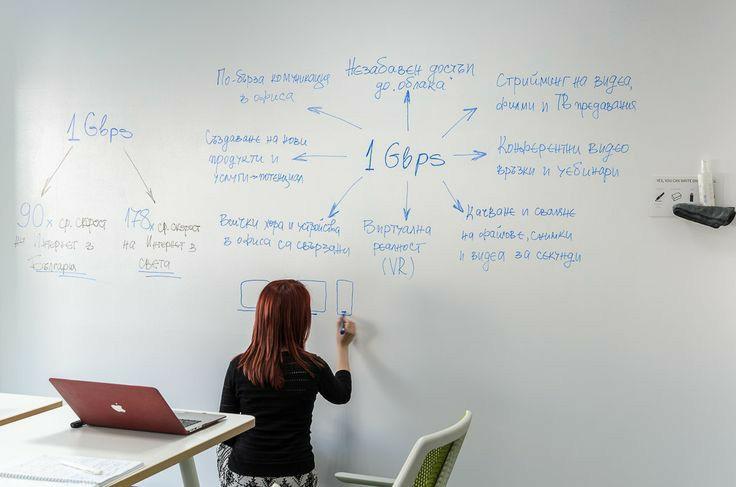 1 Gbps
90x ср. скорост
на Интернет в
България
178x ср. скорост
на Интернет в
света
По-бърза комуникация
в офиса
Незабавен достъп
до облака
Стрийминг на видеа,
филми и ТВ предавания
Създаване на нови
продукти и
услуги → потенциал
1 Gbps
Конферентни видео
връзки и уебинари
Всички хора и устройства
в офиса са свързани
Виртуална
реалност
(VR)
Качване и сваляне
на файлове, снимки
и видеа за секунди
YES, YOU CAN WRITE ON